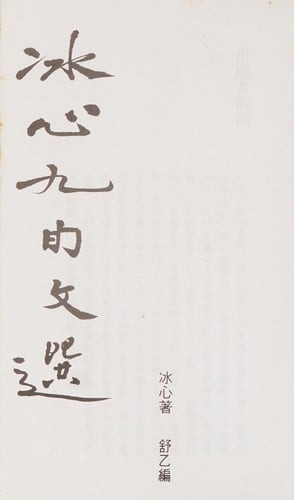 冰心九旬文選
冰心著 舒乙編